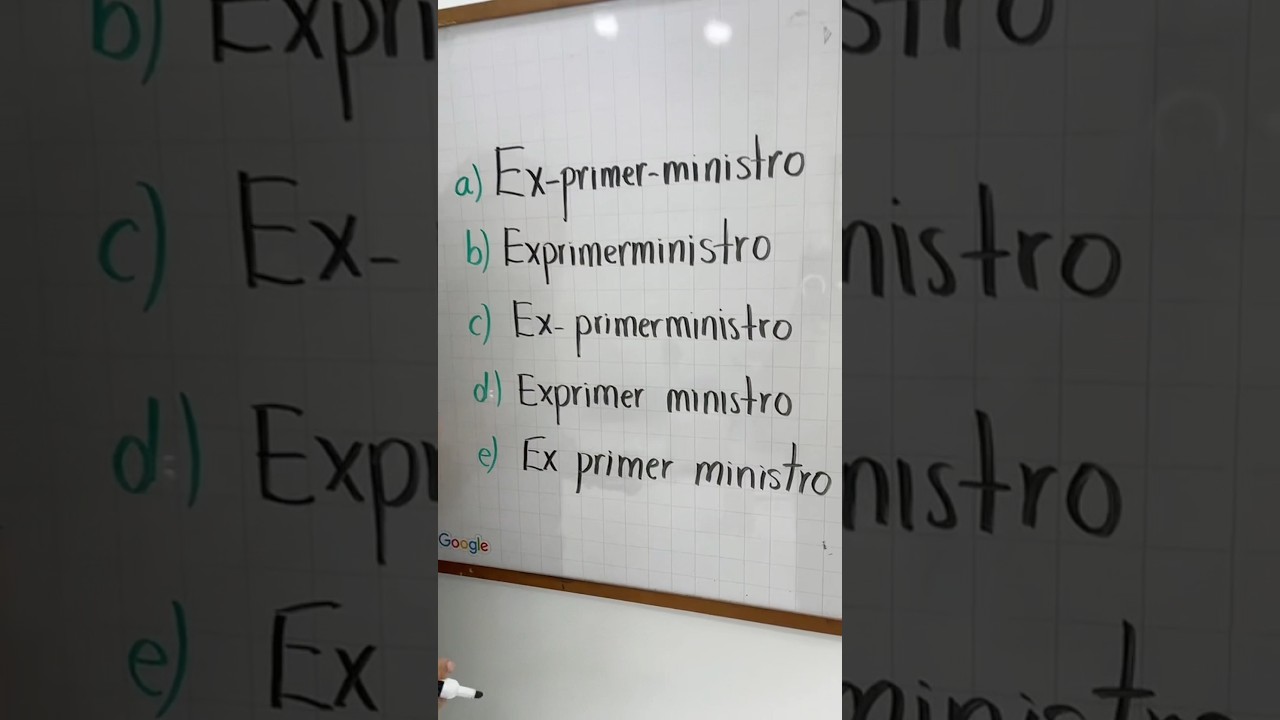 a) Ex-primer-ministro
b) Exprimerministro
c) Ex- primerministro
d) Exprimer ministro
e) Ex primer ministro
Google